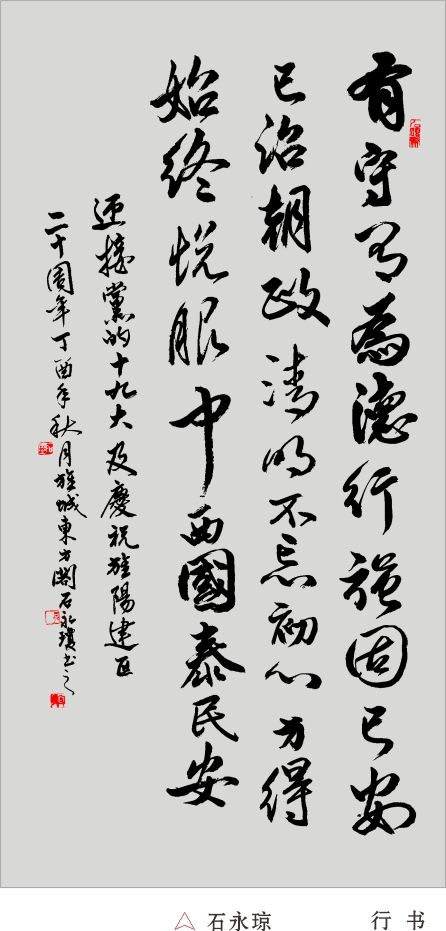 有守有為德行強固已安
已治朝政清明不忘初心方得
始終悦服中西國泰民安
迎接黨的十九大及慶祝旌陽建区
二十周年丁酉年秋月旌城東方閣石永瓊書之
石永琼
行书